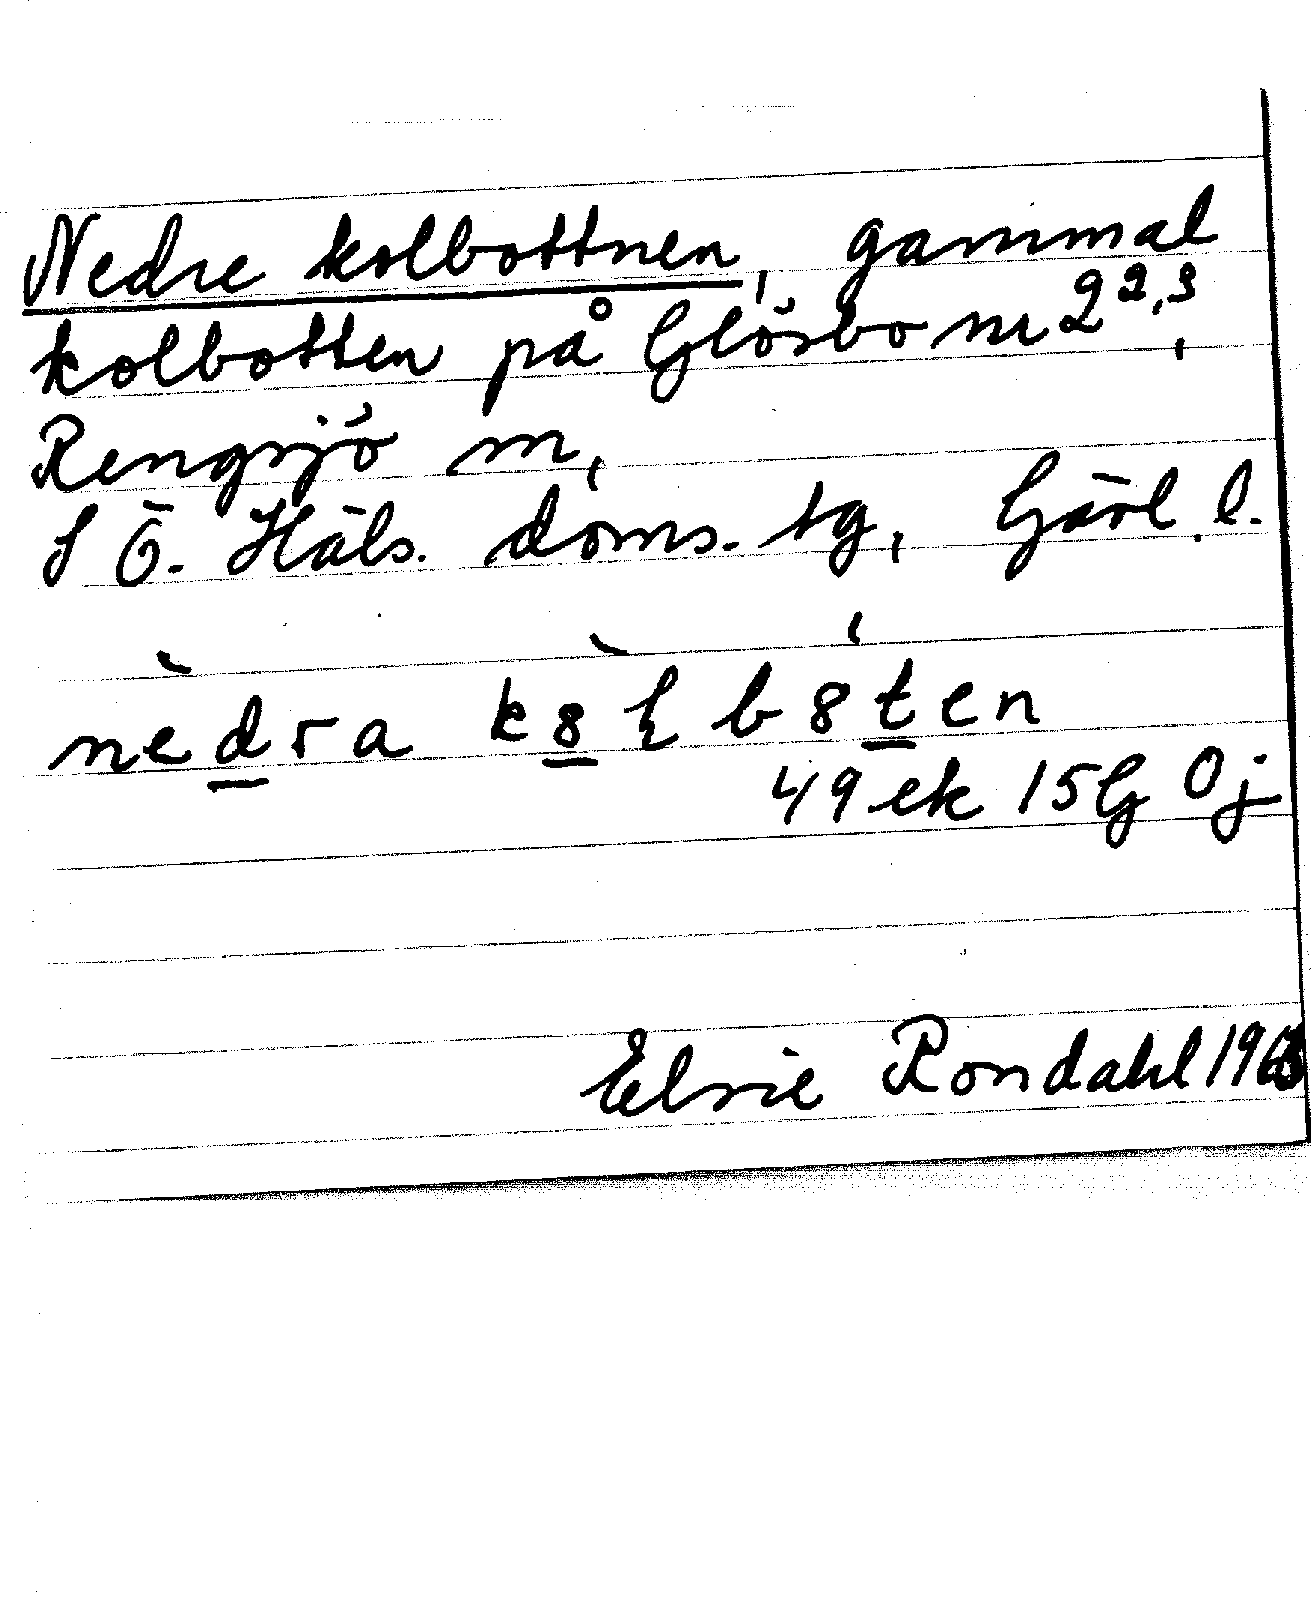 Nedre kolbottnen, gammal
kolbotten på Glösbo nr 2 2,3,
Rengsjö sn,
S Ö. Häls. doms. tg, Gävl. l.
49 ek 15G 0j
Elsie Rondahl